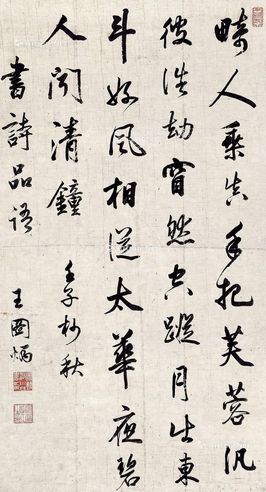 畸人乘真手把芙蓉汎
彼浩劫窅然空蹤月出東
斗好風相從太華夜碧
人聞清鐘
書詩品語 壬子杪秋
王圖炳